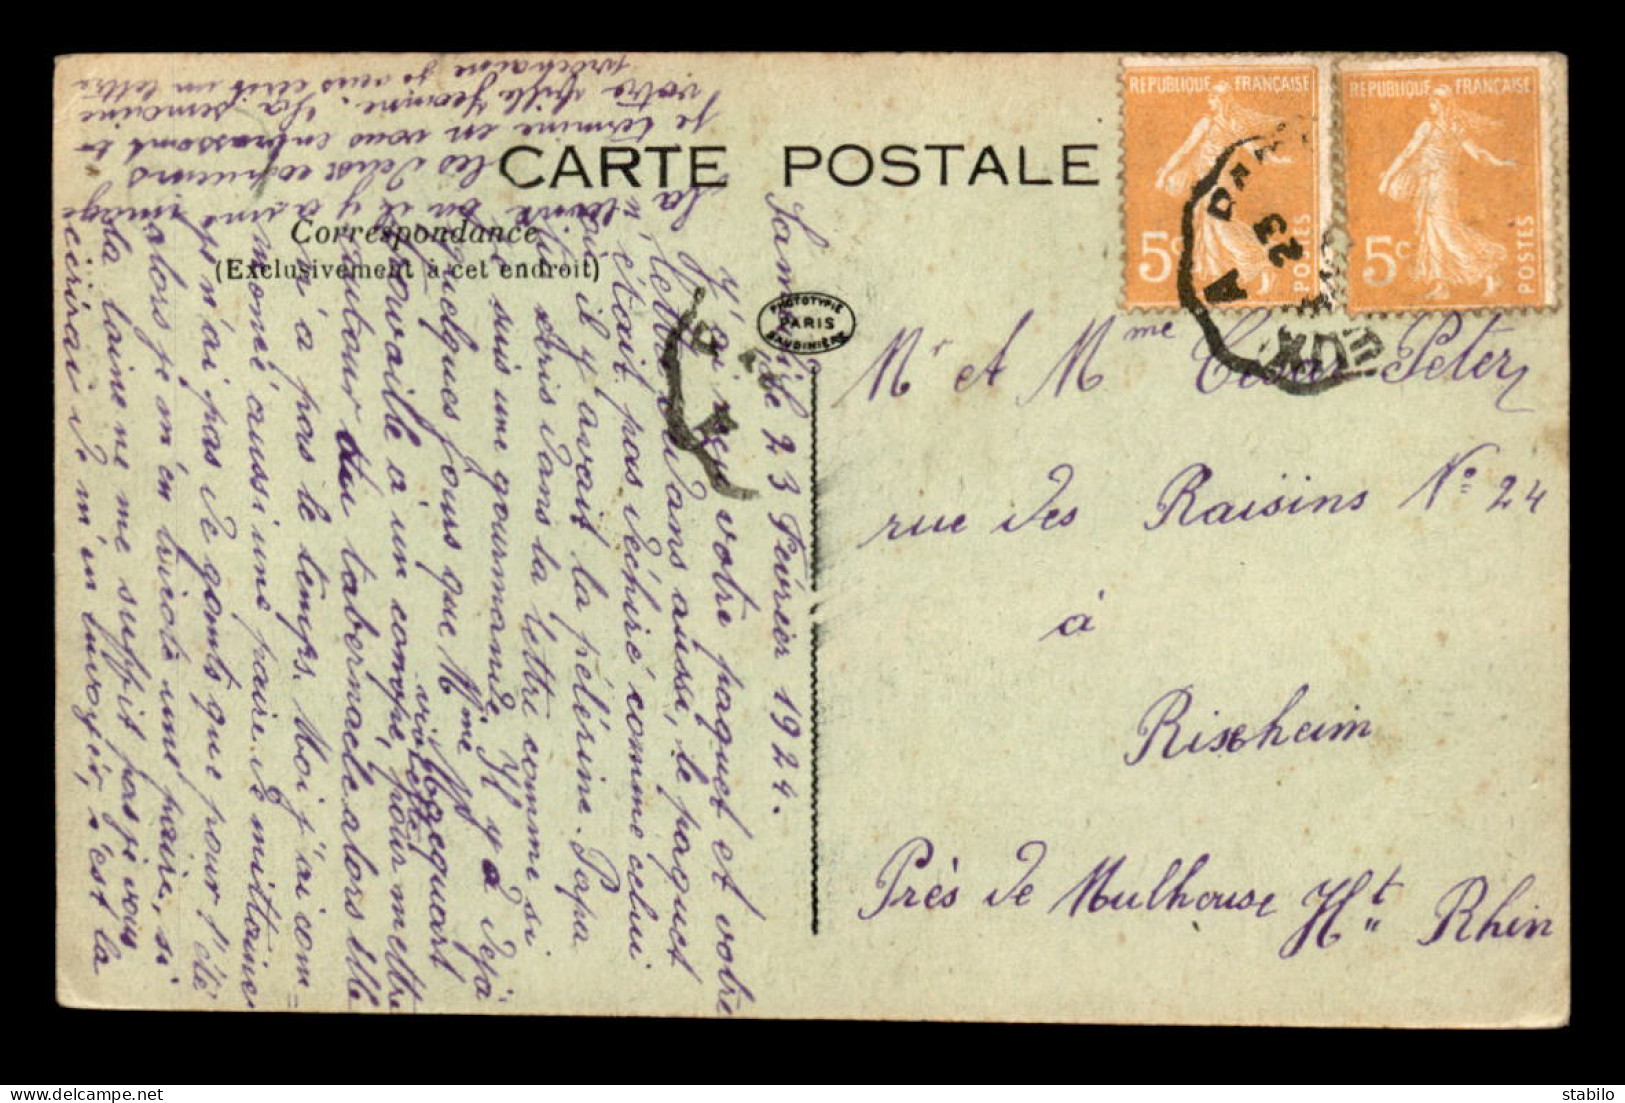 CARTE POSTALE
Correspondance
(Exclusivement à cet endroit)
PHOTOTYPIE
PARIS
BAUDINIÈRE
REPUBLIQUE FRANÇAISE
5c
POSTES
REPUBLIQUE FRANÇAISE
5c
POSTES
23
Mr et Mme César Peter
rue des Raisins No 24
à
Rixheim
Près de Mulhouse Ht Rhin
Samedi le 23 Février 1924.
J'ai reçu votre paquet et votre
lettre dedans aussi, le paquet
n'était pas déchiré comme celui
la il y avait la pélérine. Papa
écris dans la lettre comme si
je suis une gourmande. Il y a déjà
quelques jours que Mme Hocquart
travaille à un conopé violet, pour mettre
autour du tabernacle alors elle
n'a pas le temps. Moi j'ai com=
moncé aussi une paire de mittaine
je n'ai pas de gants que pour l'été
alors je m'en tricote une paire, si
la laine ne me suffit pas je vous
écrirai de m'en envoyér, c'est la
les deux
je termine en vous embrassant
votre fille Jeanne. La semaine
prochaine je vous écris un lettre